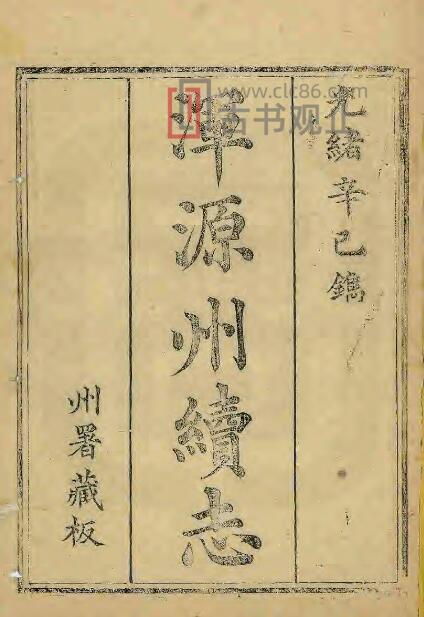 光緒辛巳鐫
渾源州續志
州署藏板
www.clc86.com
古书观止